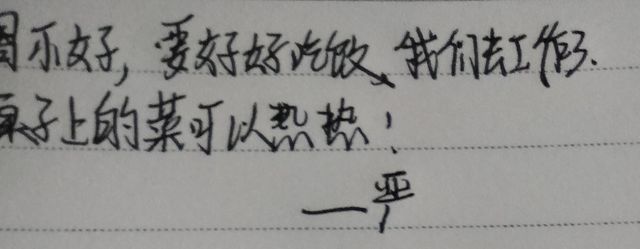 不好,要好好吃饭、我们去工作了.
桌子上的菜可以热热!
—严